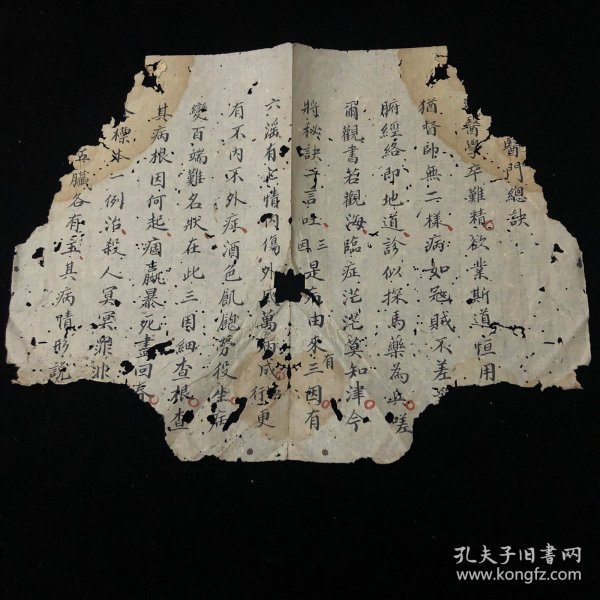 醫門總訣
醫學卒難精欲業斯道恒用
猶督帥無二樣病如冦賊不差
腑經絡即地道診似探馬藥為兵嗟
爾觀書若觀海臨症茫茫莫知津今
將秘訣千言吐三因是病由來三因有
六滛有七情內傷外感萬病成行更
有不內不外症酒色飢飽勞役生病
變百端難名狀在此三因細查根查
其病根因何起痼羸暴死盡回春
標外一例治殺人冥冥罪非
五臟各有主其病情形說
有
孔夫子旧书网
www.kongfz.com